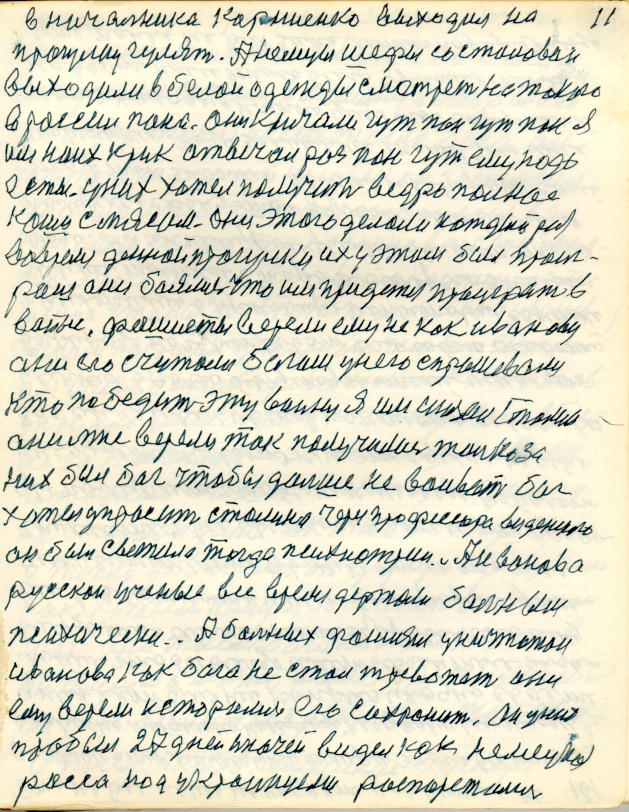 в ничальника Карниенко выходил на 11
прогулку гулят. А немцы шефы состоновой
выходили в белой одежды смотрет на токого
в россии пана. они кричали гут пан гут пан я
им на их крик отвечал раз пан гут ему подь
есты. у них хател получит ведро полное
кашы смясом. они этого делоли которой рас
вовремя денной прогулки их у этом был проиг-
рош они боялися что им придется проиграт в
войне. фашисты верели ему не как иванову
они его считали богам у него спрашевали
кто победит эту войну я им сказал Сталин
они мне верели так получилися только за
них был бог чтобы дальше не воивать бог
хотел упросить сталина через профессора виденского
он был светила тогда психиотрии.. А иванова
русскои ученые все время держали больным
психически.. А больных фашизм уничтожал
иванова как бога не стал тревожат они
ему верели история его сохранит. он у них
пробыл 27 дней и ночей видел как немцы
росса под украинцем распорежался